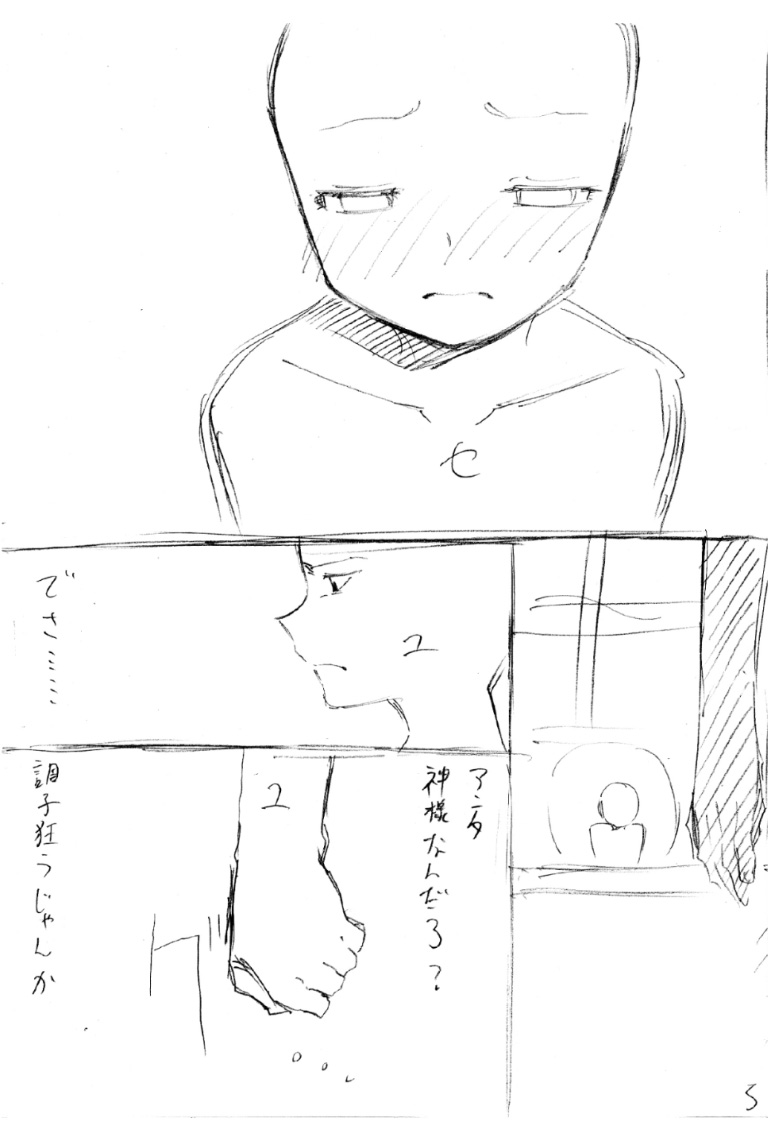 セ
ユ
でさ……
アンタ
神様なんだろ?
ユ
調子狂うじゃんか
5